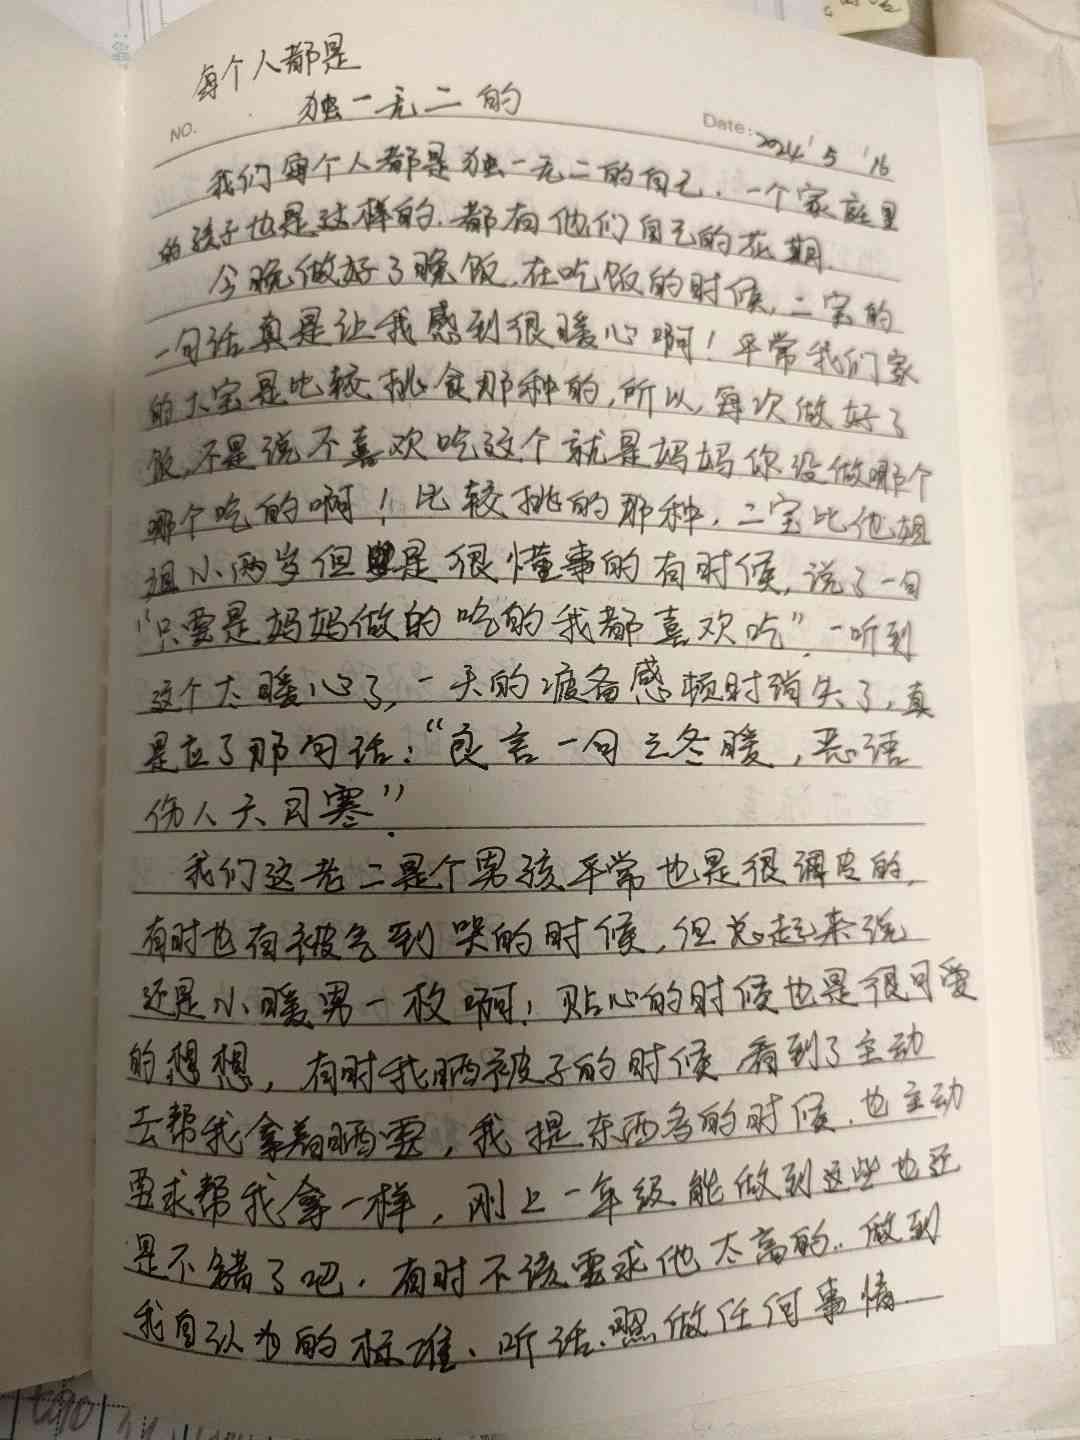 每个人都是
独一无二的
NO.
Date: 2024'5'16
我们每个人都是独一无二的自己.一个家庭里
的孩子也是这样的.都有他们自己的花期.
今晚做好了晚饭.在吃饭的时候,二宝的
一句话真是让我感到很暖心啊!平常我们家
的大宝是比较挑食那种的,所以,每次做好了
饭,不是说不喜欢吃这个就是妈妈你没做哪个
哪个吃的啊!比较挑的那种.二宝比他姐
姐小两岁但是很懂事的有时候,说了一句
“只要是妈妈做的吃的我都喜欢吃”.一听到
这个太暖心了,一天的疲备感顿时消失了,真
是应了那句话:“良言一句三冬暖,恶语
伤人六月寒”.
我们这老二是个男孩平常也是很调皮的,
有时也有被气到哭的时候,但总起来说
还是小暖男一枚啊!贴心的时候也是很可爱
的想想,有时我晒被子的时候看到了主动
去帮我拿着晒要,我提东西多的时候.也主动
要求帮我拿一样,刚上一年级能做到这些也还
是不错了吧.有时不该要求他太高的..做到
我自认为的标准、听话、照做任何事情